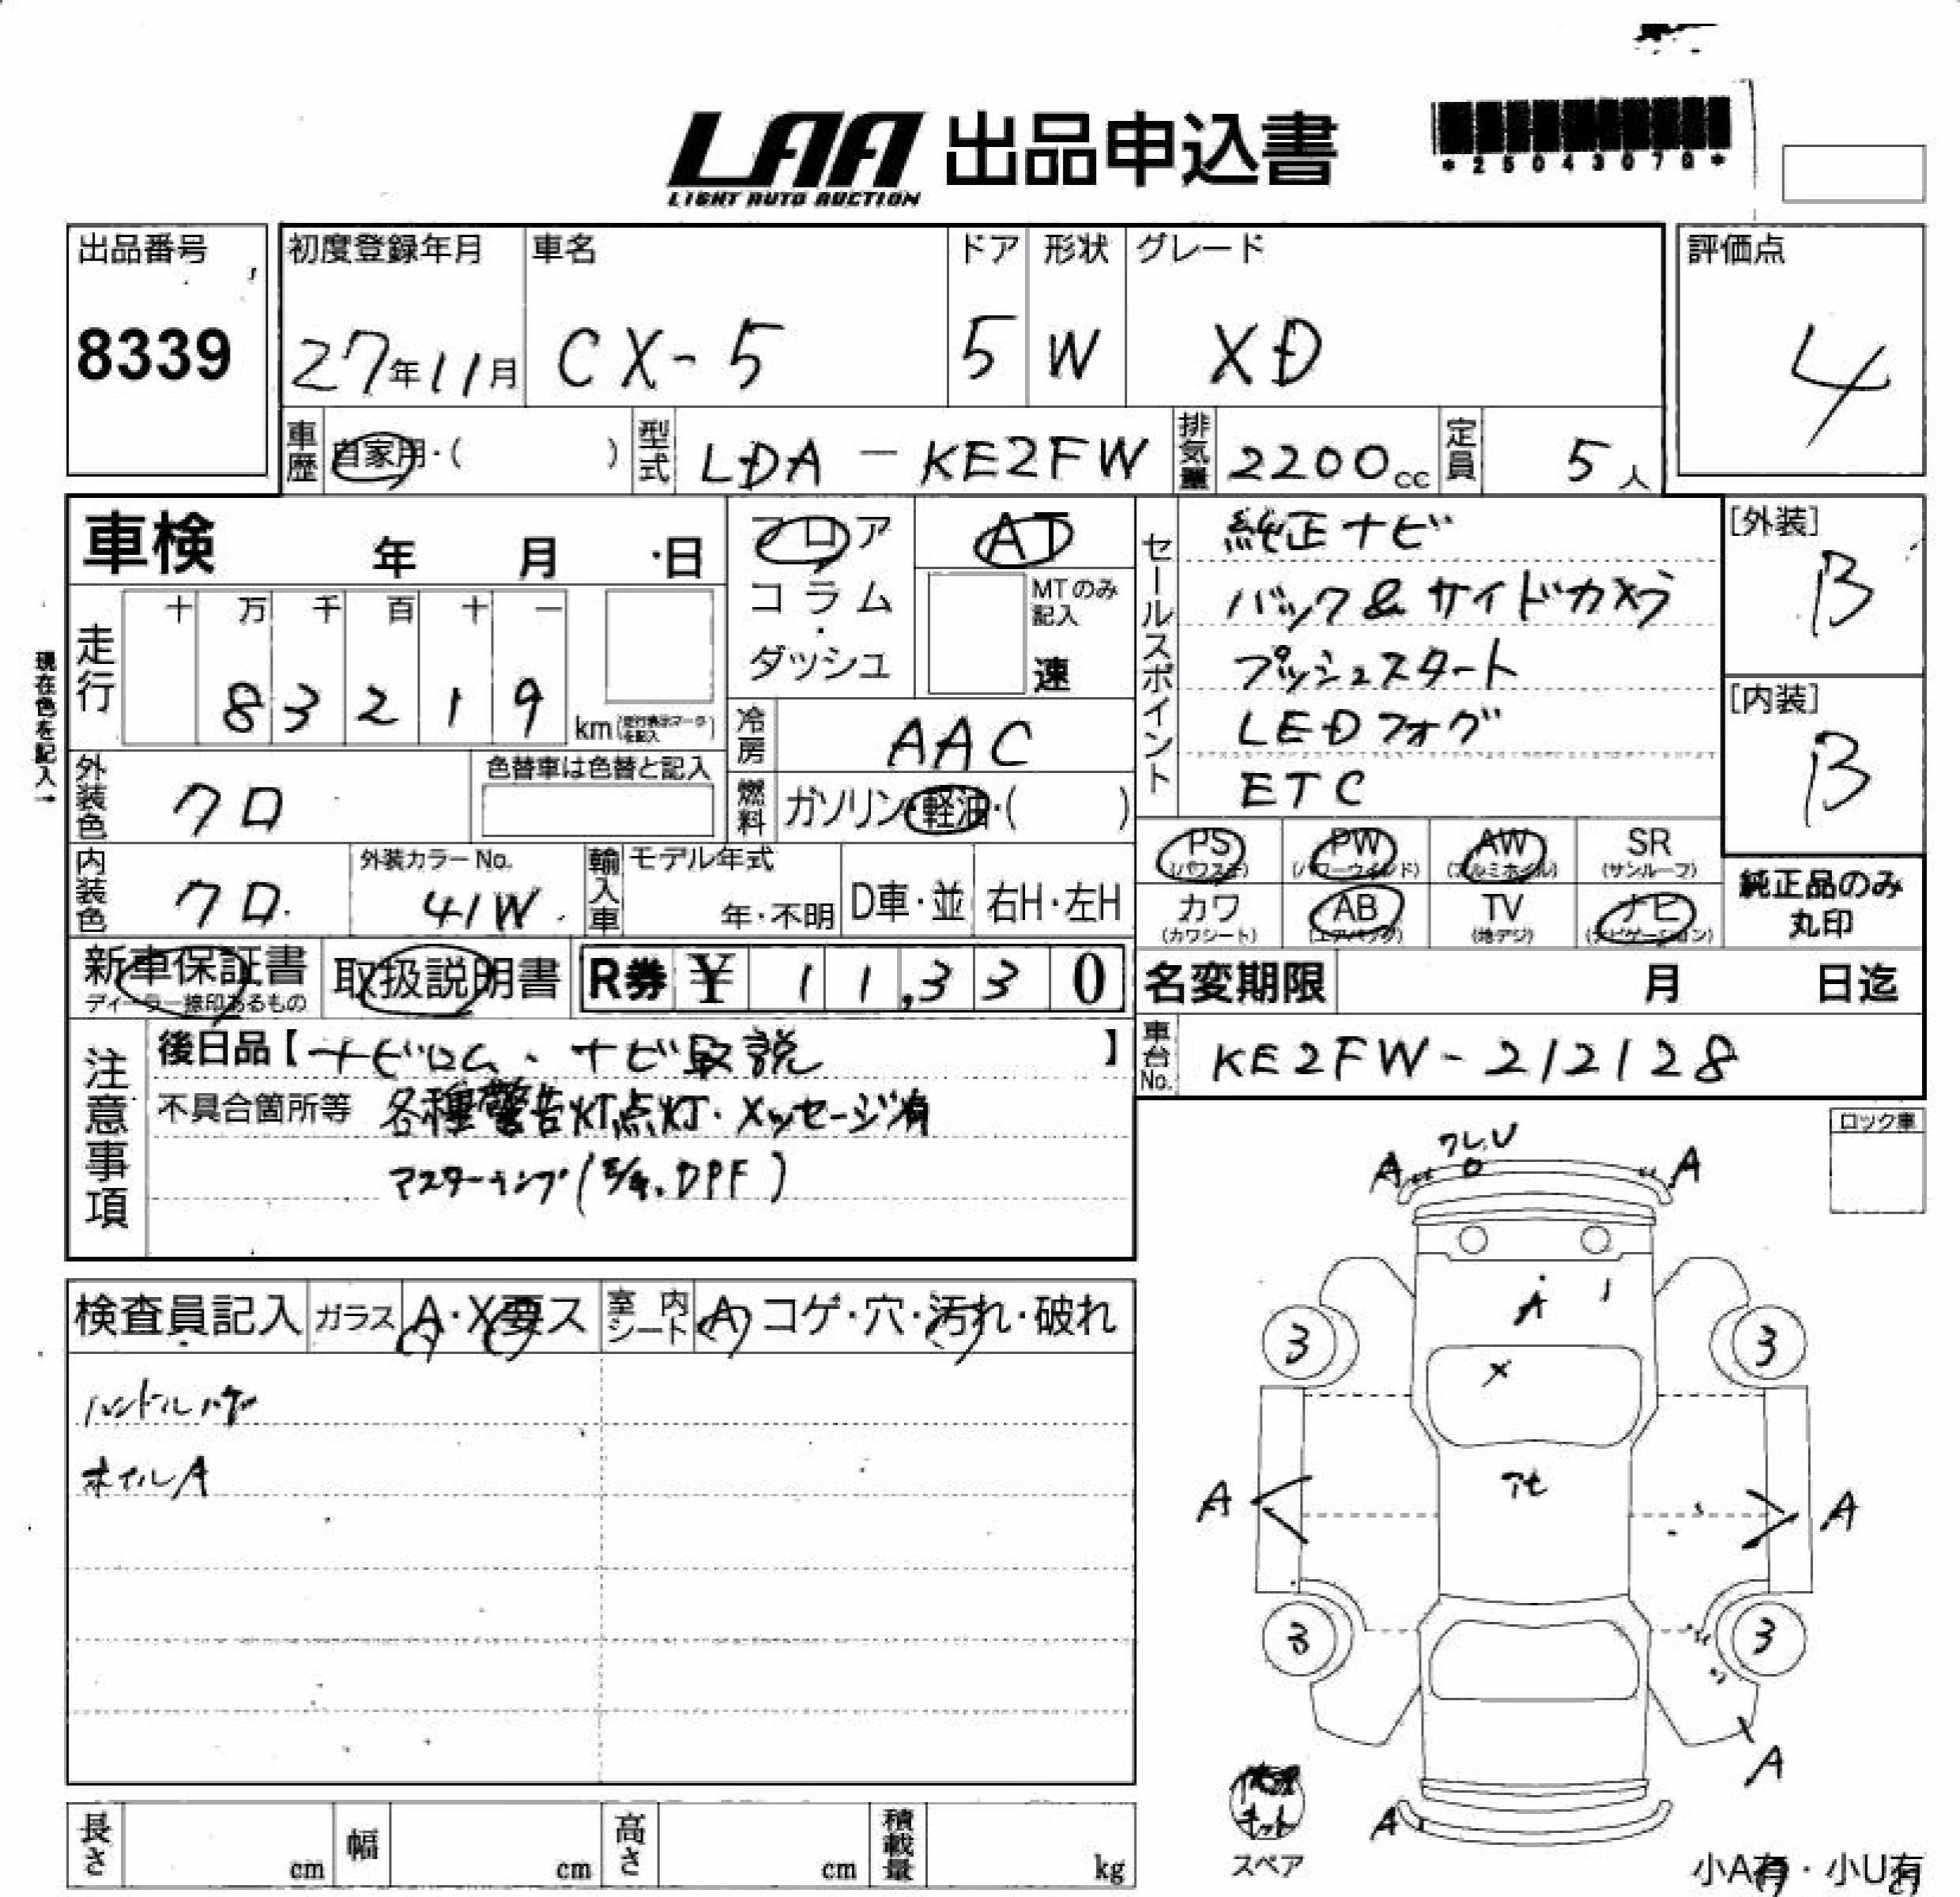 LAA 出品申込書
LIGHT AUTO AUCTION
*25043079*
出品番号
8339
初度登録年月
27年11月
車名
CX-5
ドア
5
形状
W
グレード
XD
評価点
4
車歴 自家用・( )
型式 LDA-KE2FW
排気量 2200cc
定員 5人
車検 年 月 日
フロア
コラム
・
ダッシュ
AT
MTのみ記入
速
セールスポイント
純正ナビ
バック&サイドカメラ
プッシュスタート
LEDフォグ
ETC
[外装]
B
[内装]
B
現在色を記入→
走行 十 万 千 百 十 一
83219
km(走行表示マークを記入)
冷房 AAC
燃料 ガソリン・軽油・( )
外装色 クロ
色替車は色替と記入
内装色 クロ
外装カラーNo.
41W
輸入車 モデル年式
年・不明
D車・並
右H・左H
PS
(パワステ)
PW
(パワーウインド)
AW
(アルミホイル)
SR
(サンルーフ)
カワ
(カワシート)
AB
(エアバッグ)
TV
(地デジ)
ナビ
(ナビゲーション)
純正品のみ
丸印
新車保証書
ディーラー捺印あるもの
取扱説明書
R券 ¥ 11,330
名変期限 月 日迄
車台No. KE2FW-212128
注意事項
後日品【ナビロム、ナビ取説】
不具合箇所等 各種警告灯点灯・メッセージ有
DPF)
ロック車
検査員記入
ガラス A・X要ス
室内シート A コゲ・穴・汚れ・破れ
ハンドルハゲ
ホイルA
A U A
A
3 3
X
A A
3 3
A
A
修理キット
スペア
小A有・小U有
長さ cm
幅 cm
高さ cm
積載量 kg